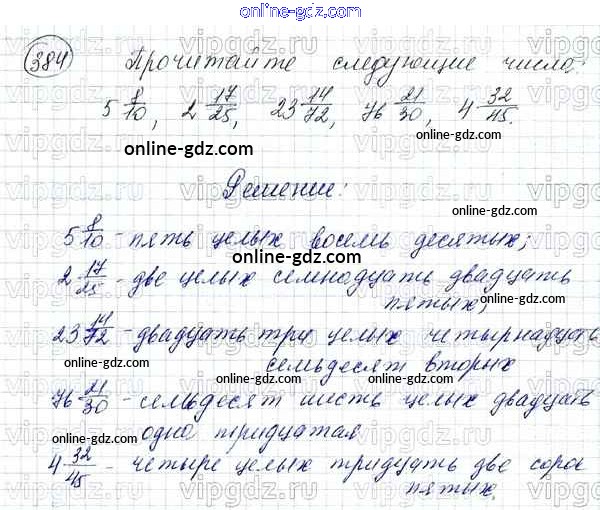 online-gdz.com
384 Прочитайте следующие числа:
5 8/10, 2 17/25, 23 14/72, 76 21/30, 4 32/45.
online-gdz.com
online-gdz.com
Решение:
online-gdz.com
online-gdz.com
5 8/10 - пять целых восемь десятых;
online-gdz.com
2 17/25 - две целых семнадцать двадцать
пятых;
online-gdz.com
23 14/72 - двадцать три целых четырнадцать
семьдесят вторых
online-gdz.com
online-gdz.com
76 21/30 - семьдесят шесть целых двадцать
одна тридцатая
online-gdz.com
online-gdz.com
4 32/45 - четыре целых тридцать две соро
пятых.
online-gdz.com